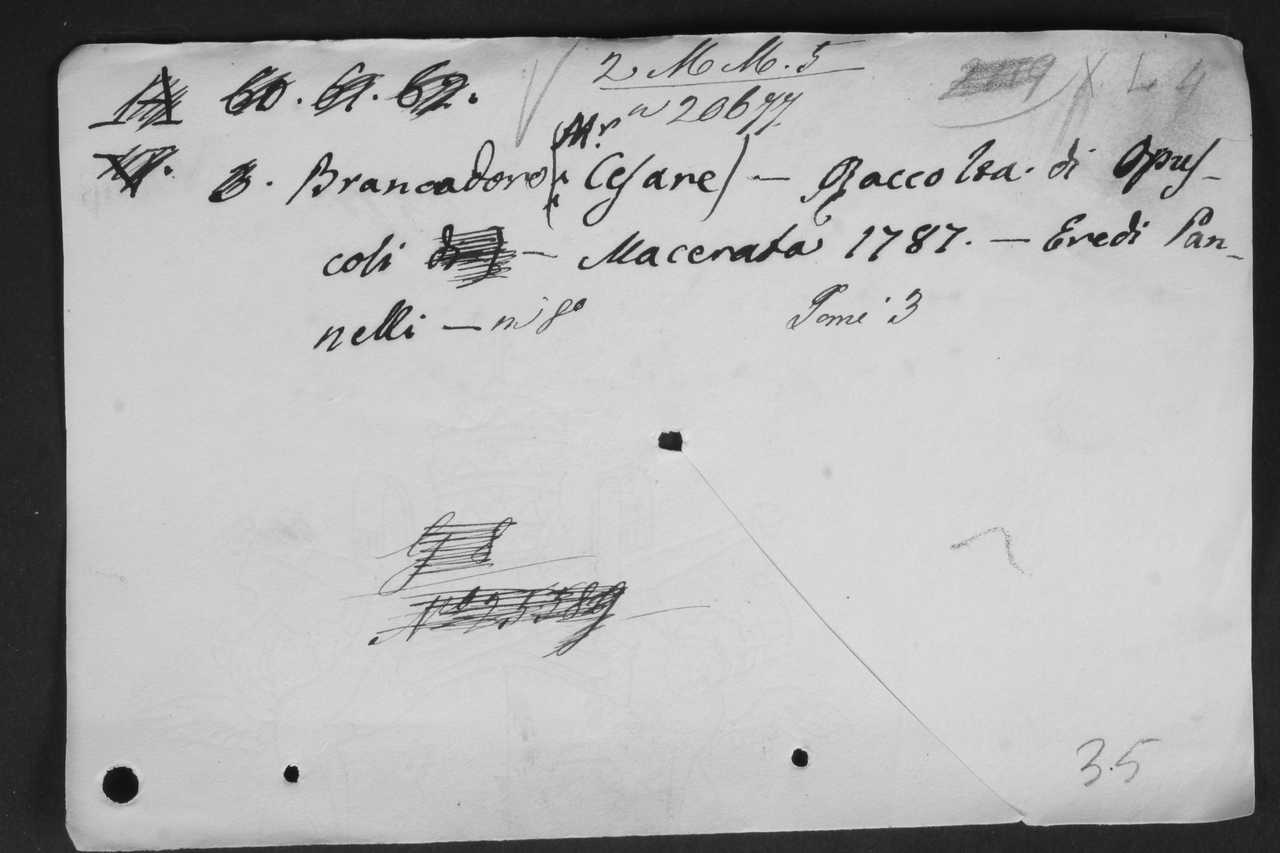 60. 61. 62. 2 M M. 5 X L 4
n 20677
3. Brancadoro (Mr. Cesare) — Raccolta di Opus-
coli — Macerata 1787. — Eredi Pan-
nelli — in 8º Tomi 3
Nº 25389
35